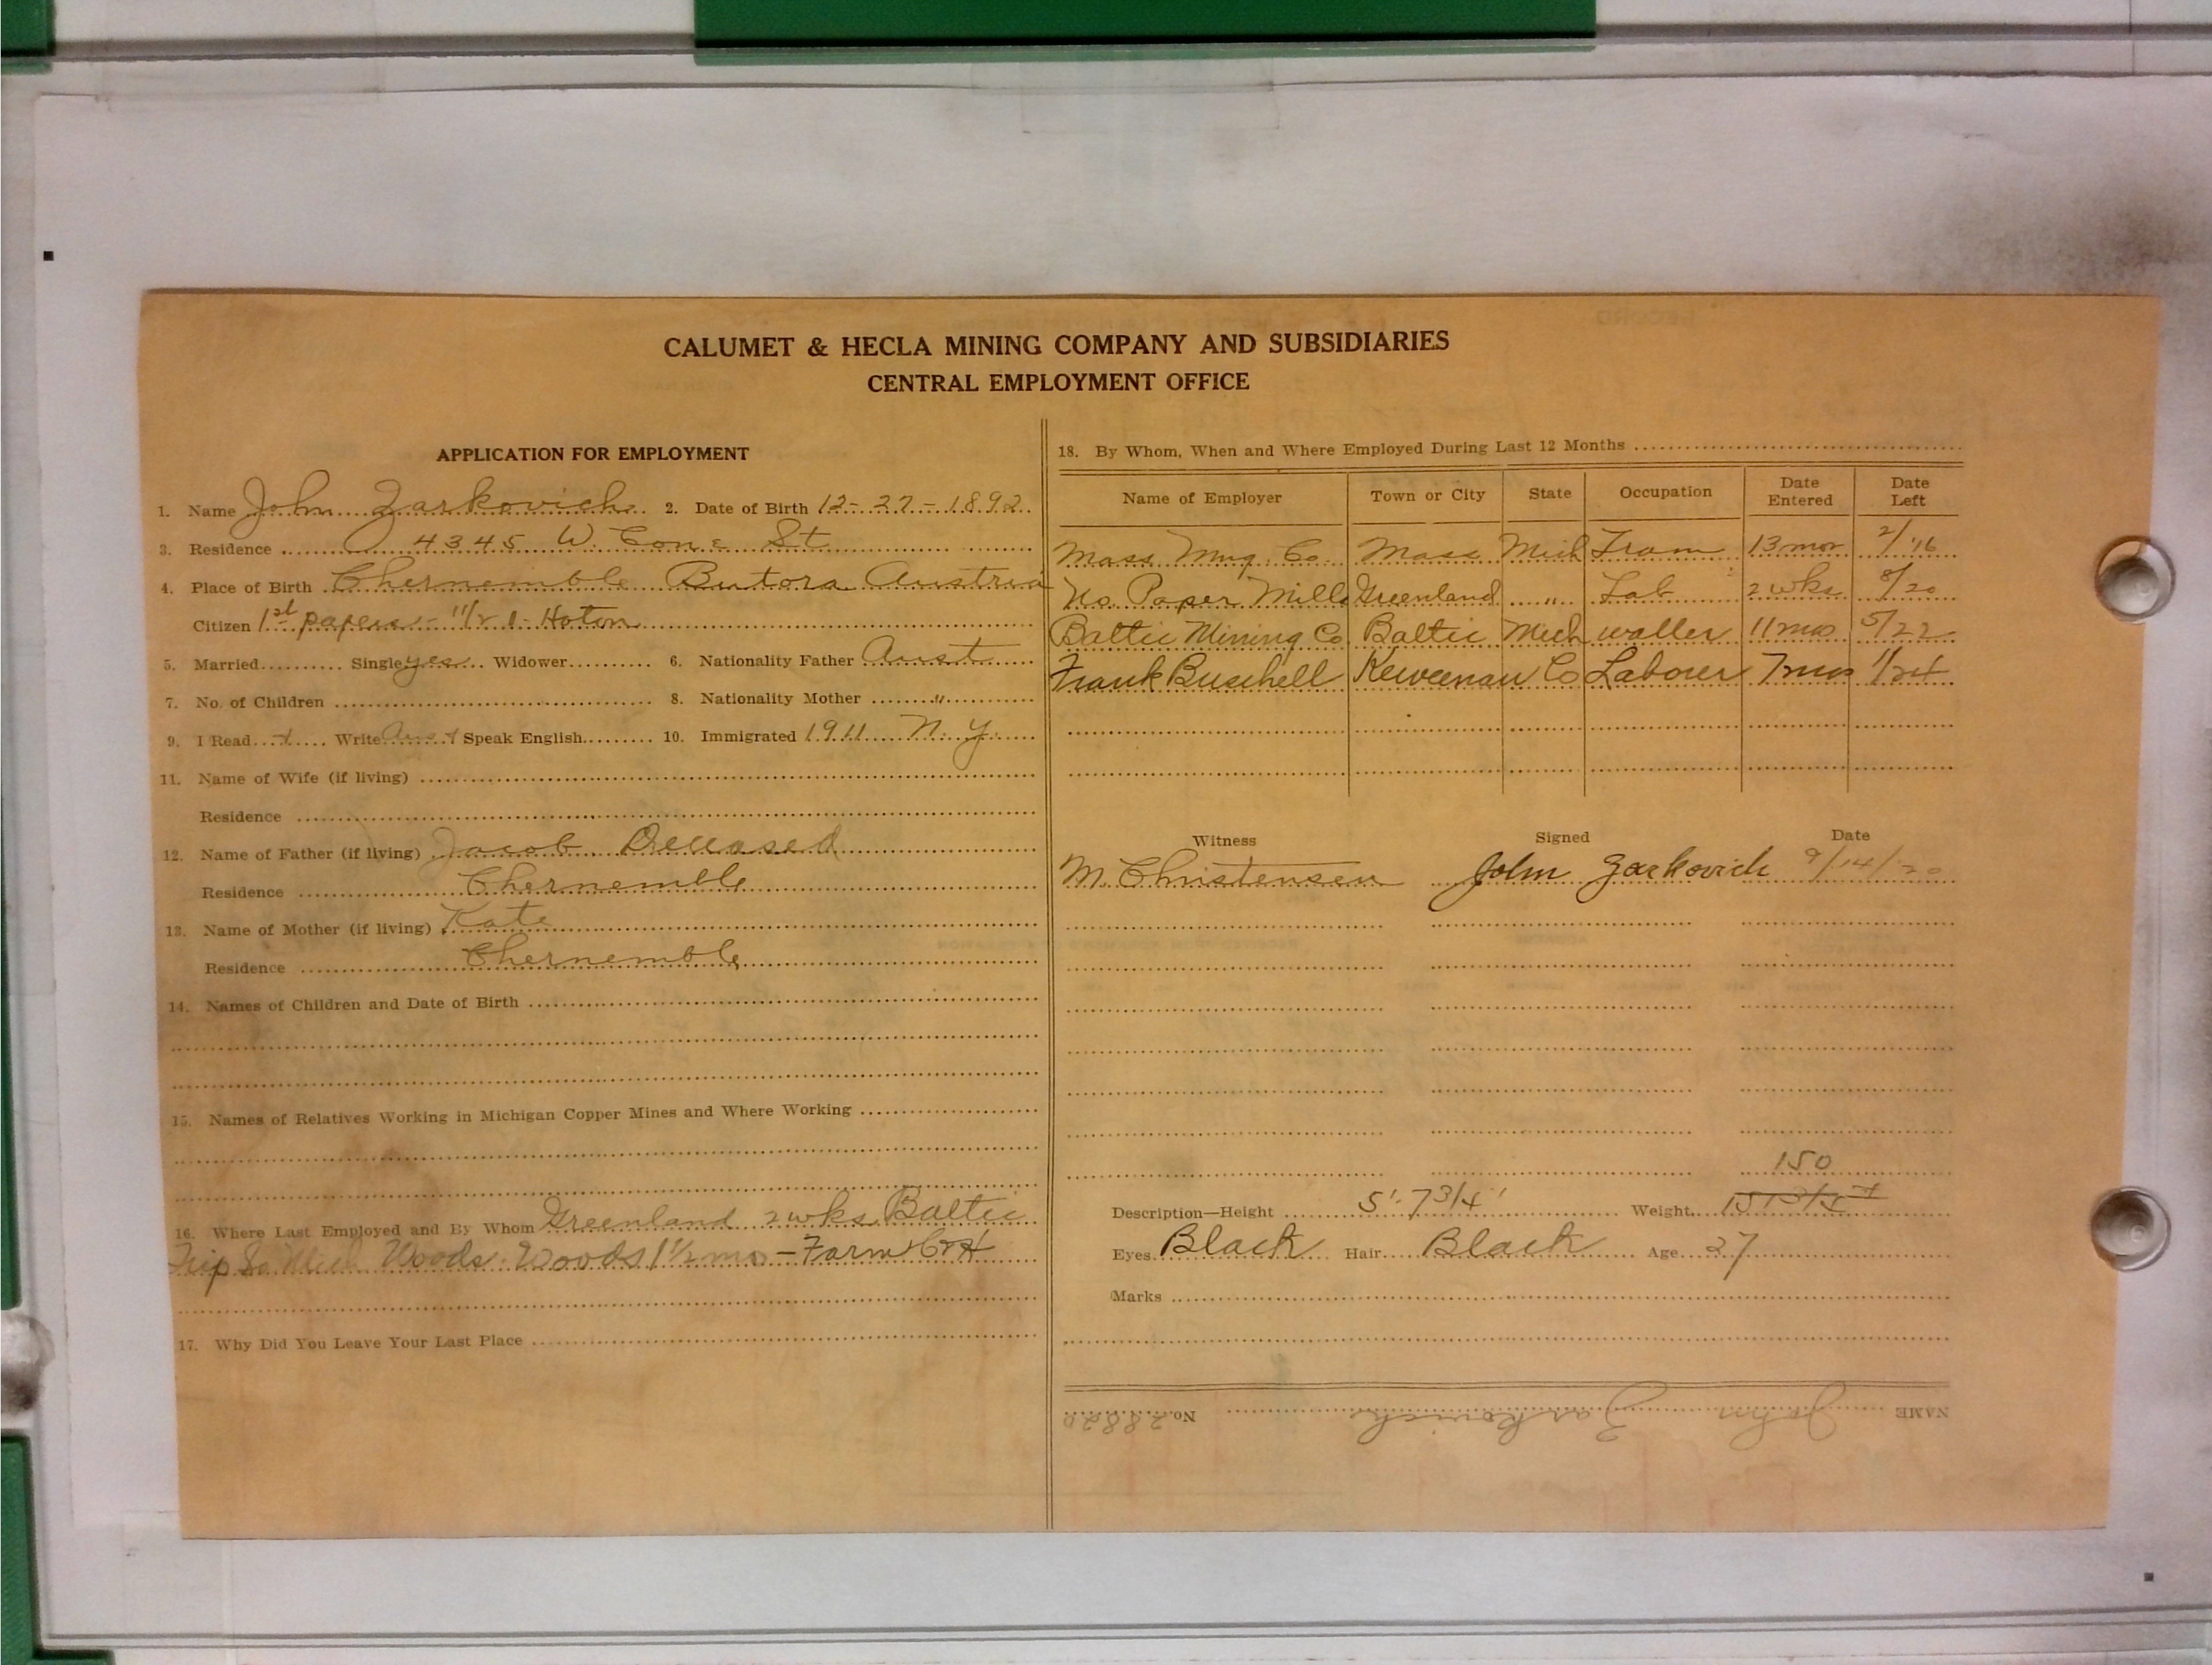 CALUMET & HECLA MINING COMPANY AND SUBSIDIARIES
CENTRAL EMPLOYMENT OFFICE
APPLICATION FOR EMPLOYMENT
1. Name John Zarkovich 2. Date of Birth 12-27-1892
3. Residence 4345 W. Cone St
4. Place of Birth Chernemble Butora Austria
Citizen 1st papers - 11/21 - Hoton
5. Married Single yes Widower 6. Nationality Father Aust
7. No. of Children 8. Nationality Mother "
9. I Read + Write Aust Speak English 10. Immigrated 1911 N.Y.
11. Name of Wife (if living)
Residence
12. Name of Father (if living) Jacob Deceased
Residence Chernemble
13. Name of Mother (if living) Kate
Residence Chernemble
14. Names of Children and Date of Birth
15. Names of Relatives Working in Michigan Copper Mines and Where Working
16. Where Last Employed and By Whom Greenland 2 wks. Baltic
Trip Woods. Woods 1 1/2 mo - Farm C & H
17. Why Did You Leave Your Last Place
18. By Whom, When and Where Employed During Last 12 Months
Name of Employer Town or City State Occupation Date Entered Date Left
Mass Mng. Co. Mass Mich Tram 13 mos 2/'16
No. Paper Mills Greenland " Lab 2 wks 8/20
Baltic Mining Co Baltic Mich waller 11 mos 5/22
Frank Buschell Keweenaw Co Laborer 7 mos 1/24
Witness Signed Date
M. Christensen John Zarkovich 9/14/20
150
Description—Height 5' 7 3/4 ' Weight
Eyes Black Hair Black Age 27
Marks
NAME John Zarkovich No. 28820